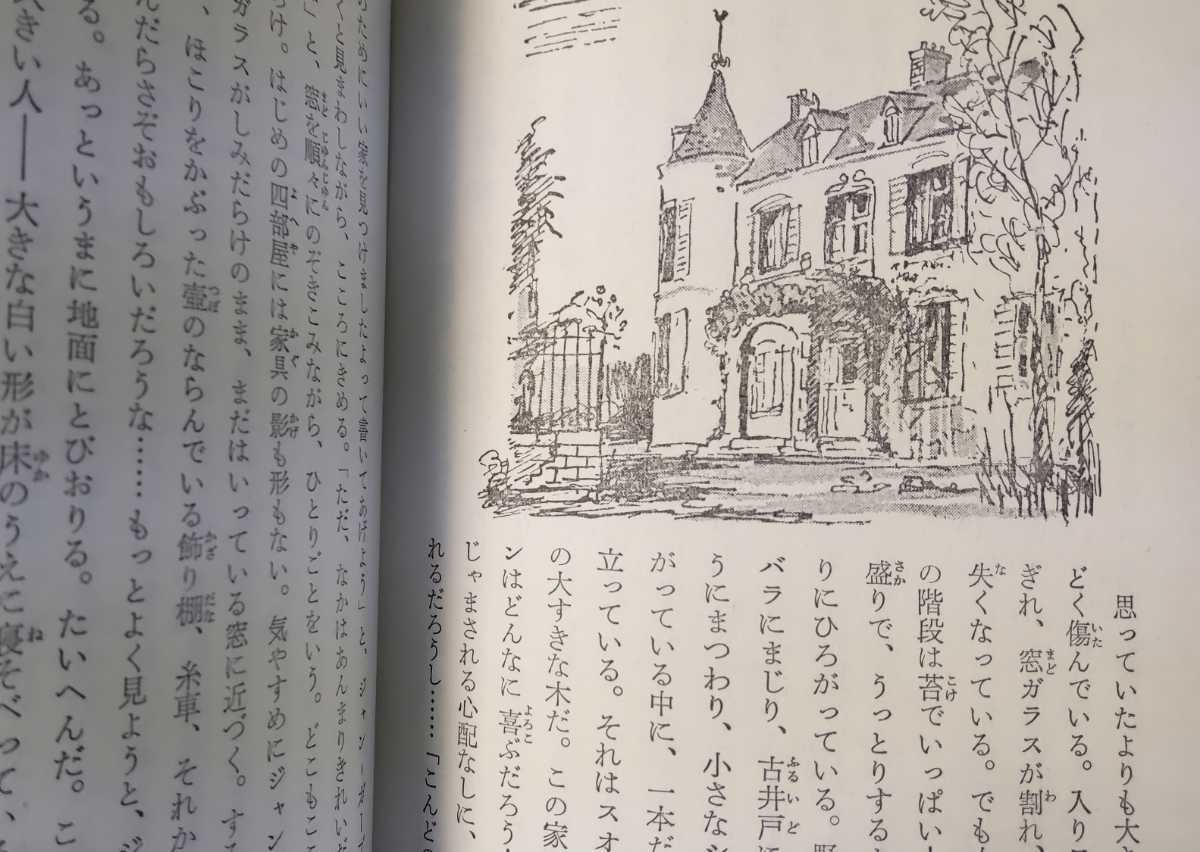 思っていたよりも大き
どく傷んでいる。入り
ぎれ、窓ガラスが割れ、
失くなっている。でも
の階段は苔でいっぱい
盛りで、うっとりする
りにひろがっている。
バラにまじり、古井戸に
うにまつわり、小さな
がっている中に、一本だ
立っている。それはスオ
の大すきな木だ。この家
ンはどんなに喜ぶだろう
じゃまされる心配なしに、
れるだろうし……「こんどの
のためにいい家を見つけましたよって書いてあげよう」と、ジャン
くと見まわしながら、こころにきめる。「ただ、なかはあんまりきれい
」と、窓を順々にのぞきこみながら、ひとりごとをいう。どこもここ
け。はじめの四部屋には家具の影も形もない。気やすめにジャン
ガラスがしみだらけのまま、まだはいっている窓に近づく。する
、ほこりをかぶった壺のならんでいる飾り棚、糸車、それか
んだらさぞおもしろいだろうな……もっとよく見ようと、ジ
る。あっというまに地面にとびおりる。たいへんだ。こ
きい人――大きな白い形が床のうえに寝そべって、